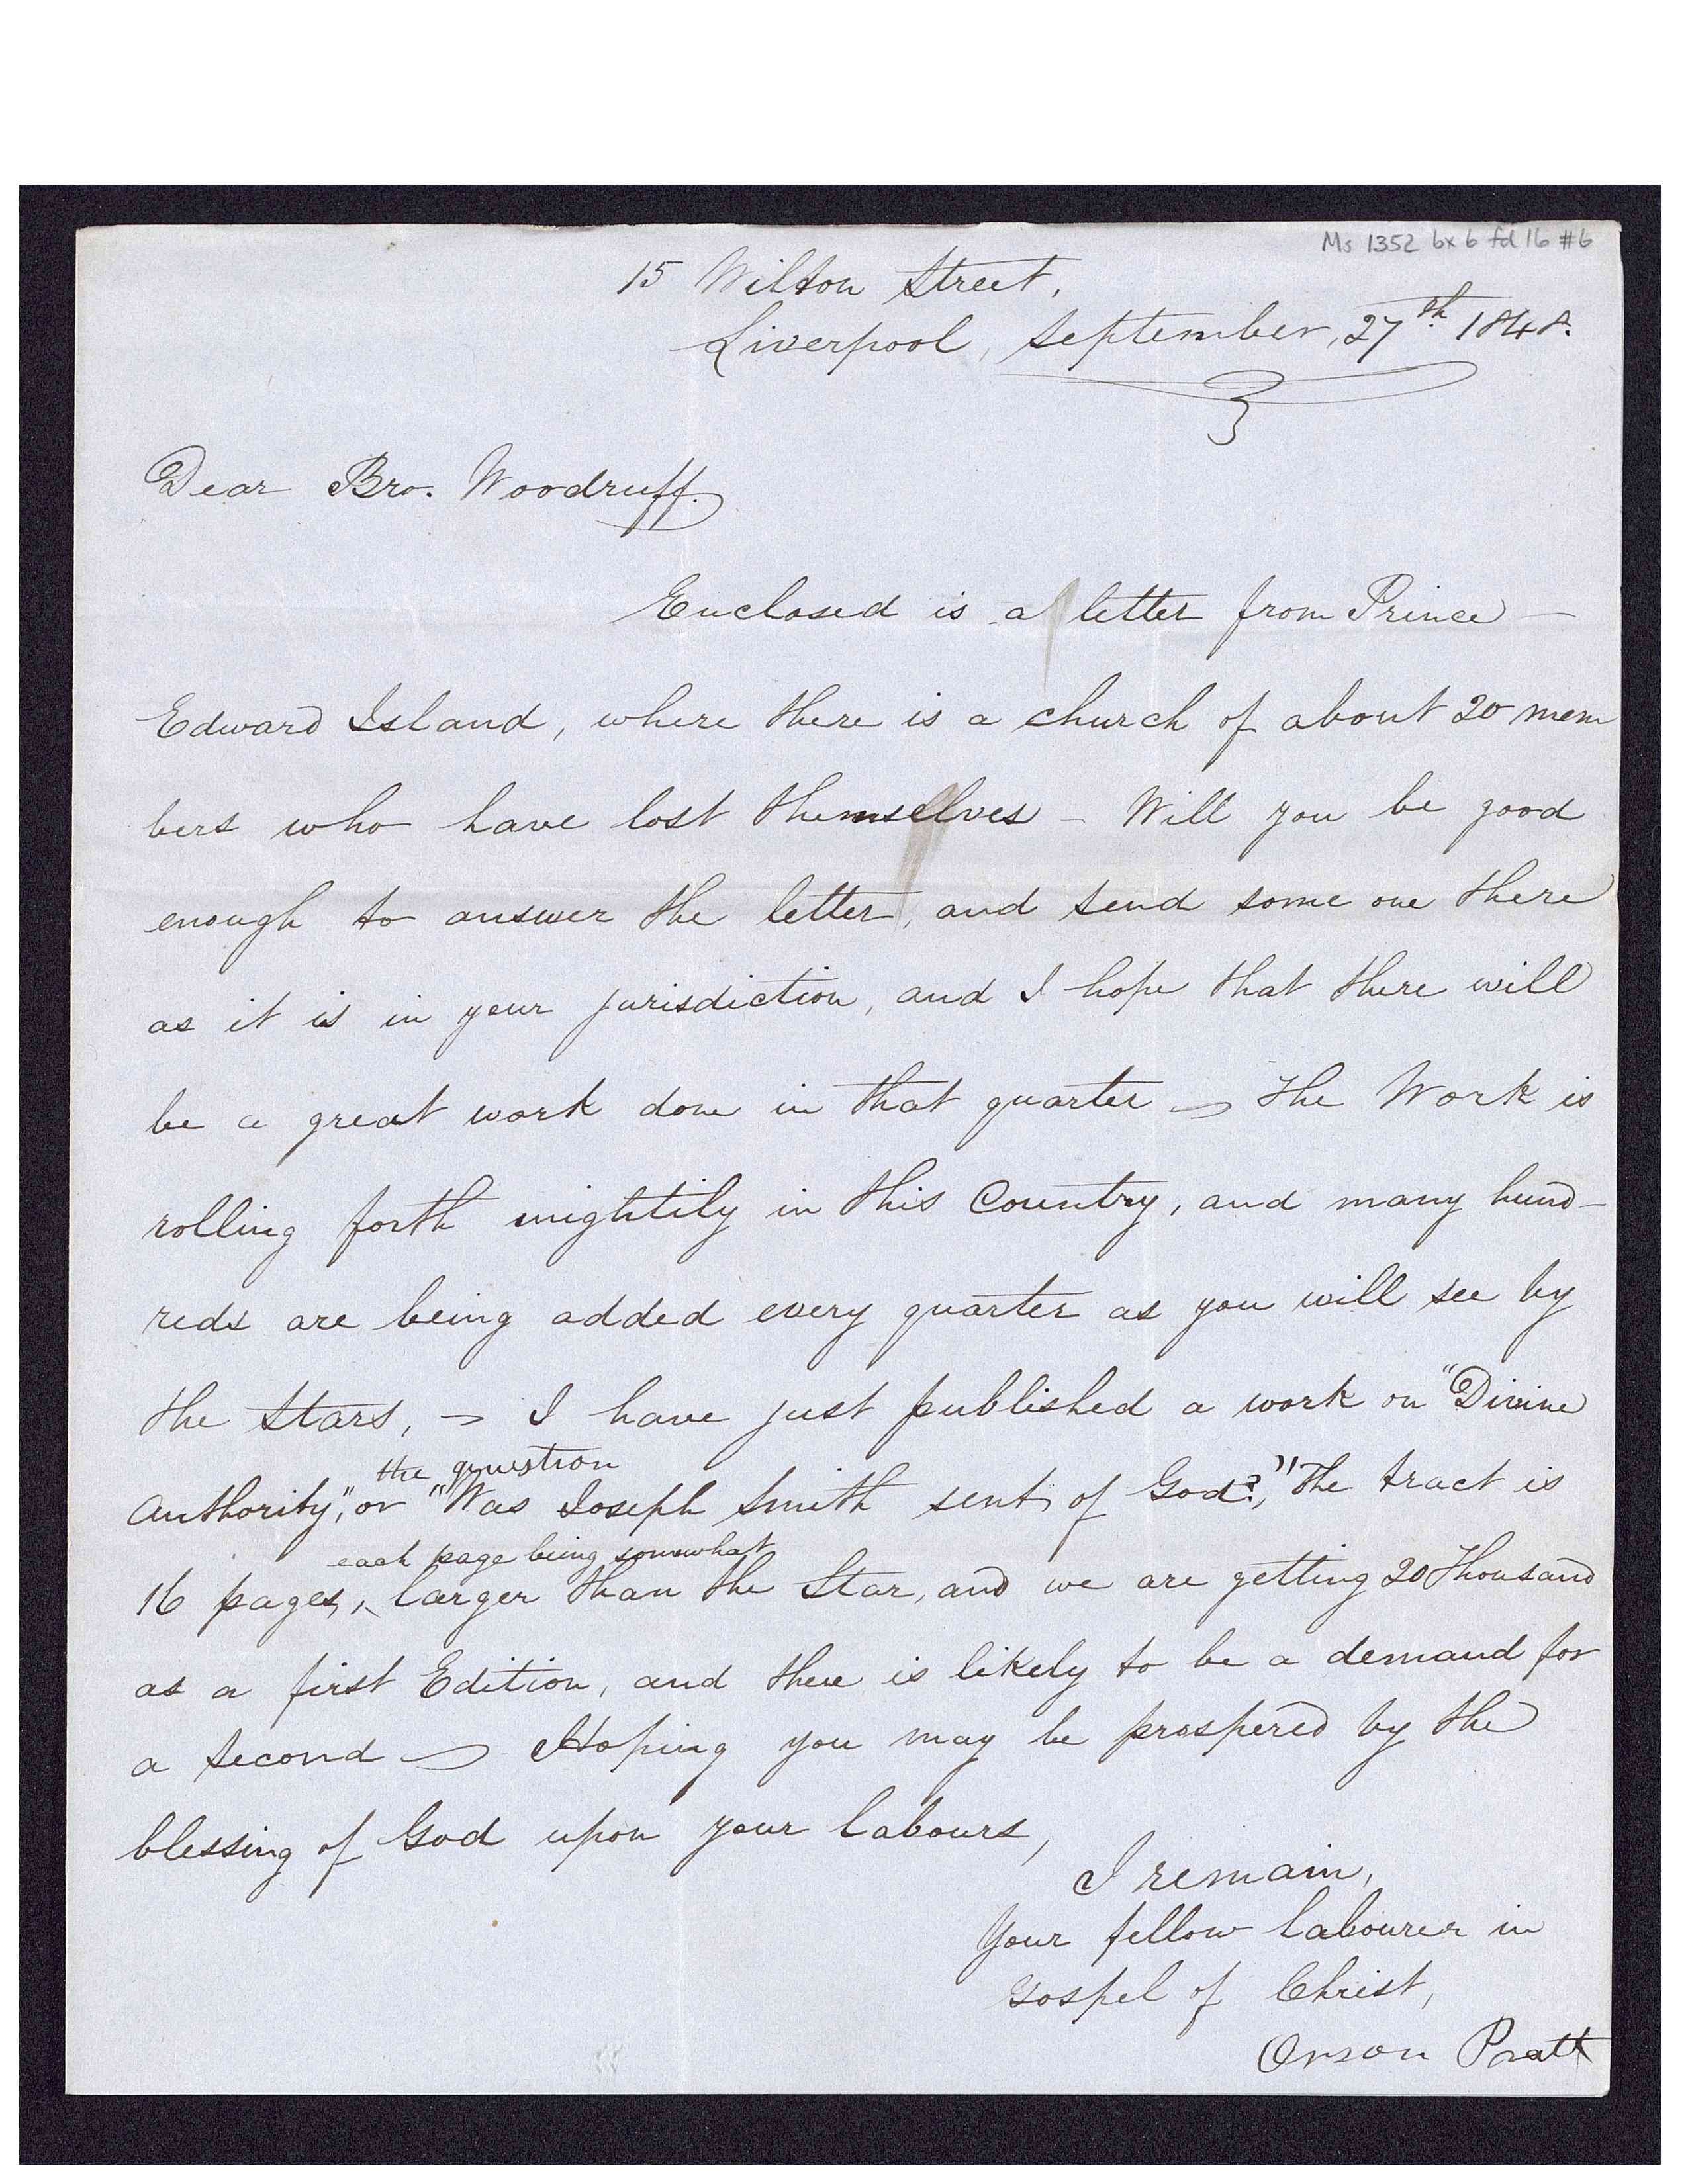 Ms 1352 bx 6 fd 16 #6
15 Wilton Street,
Liverpool, September, 27th 1848.
Dear Bro. Woodruff.
Enclosed is a letter from Prince –
Edward Island, where there is a church of about 20 mem
bers who have lost themselves – Will you be good
enough to answer the letter, and send some one there
as it is in your jurisdiction, and I hope that there will
be a great work done in that quarter – The Work is
rolling forth mightily in this Country, and many hund–
reds are being added every quarter as you will see by
the Stars, – I have just published a work on "Divine
the question
Authority", or "Was Joseph Smith sent of God?," The tract is
each page being somewhat
16 pages, larger than the Star, and we are getting 20 Thousand
as a first Edition, and there is likely to be a demand for
a second – Hoping you may be prospered by the
blessing of God upon your labours,
I remain,
Your fellow labourer in
Gospel of Christ,
Orson Pratt